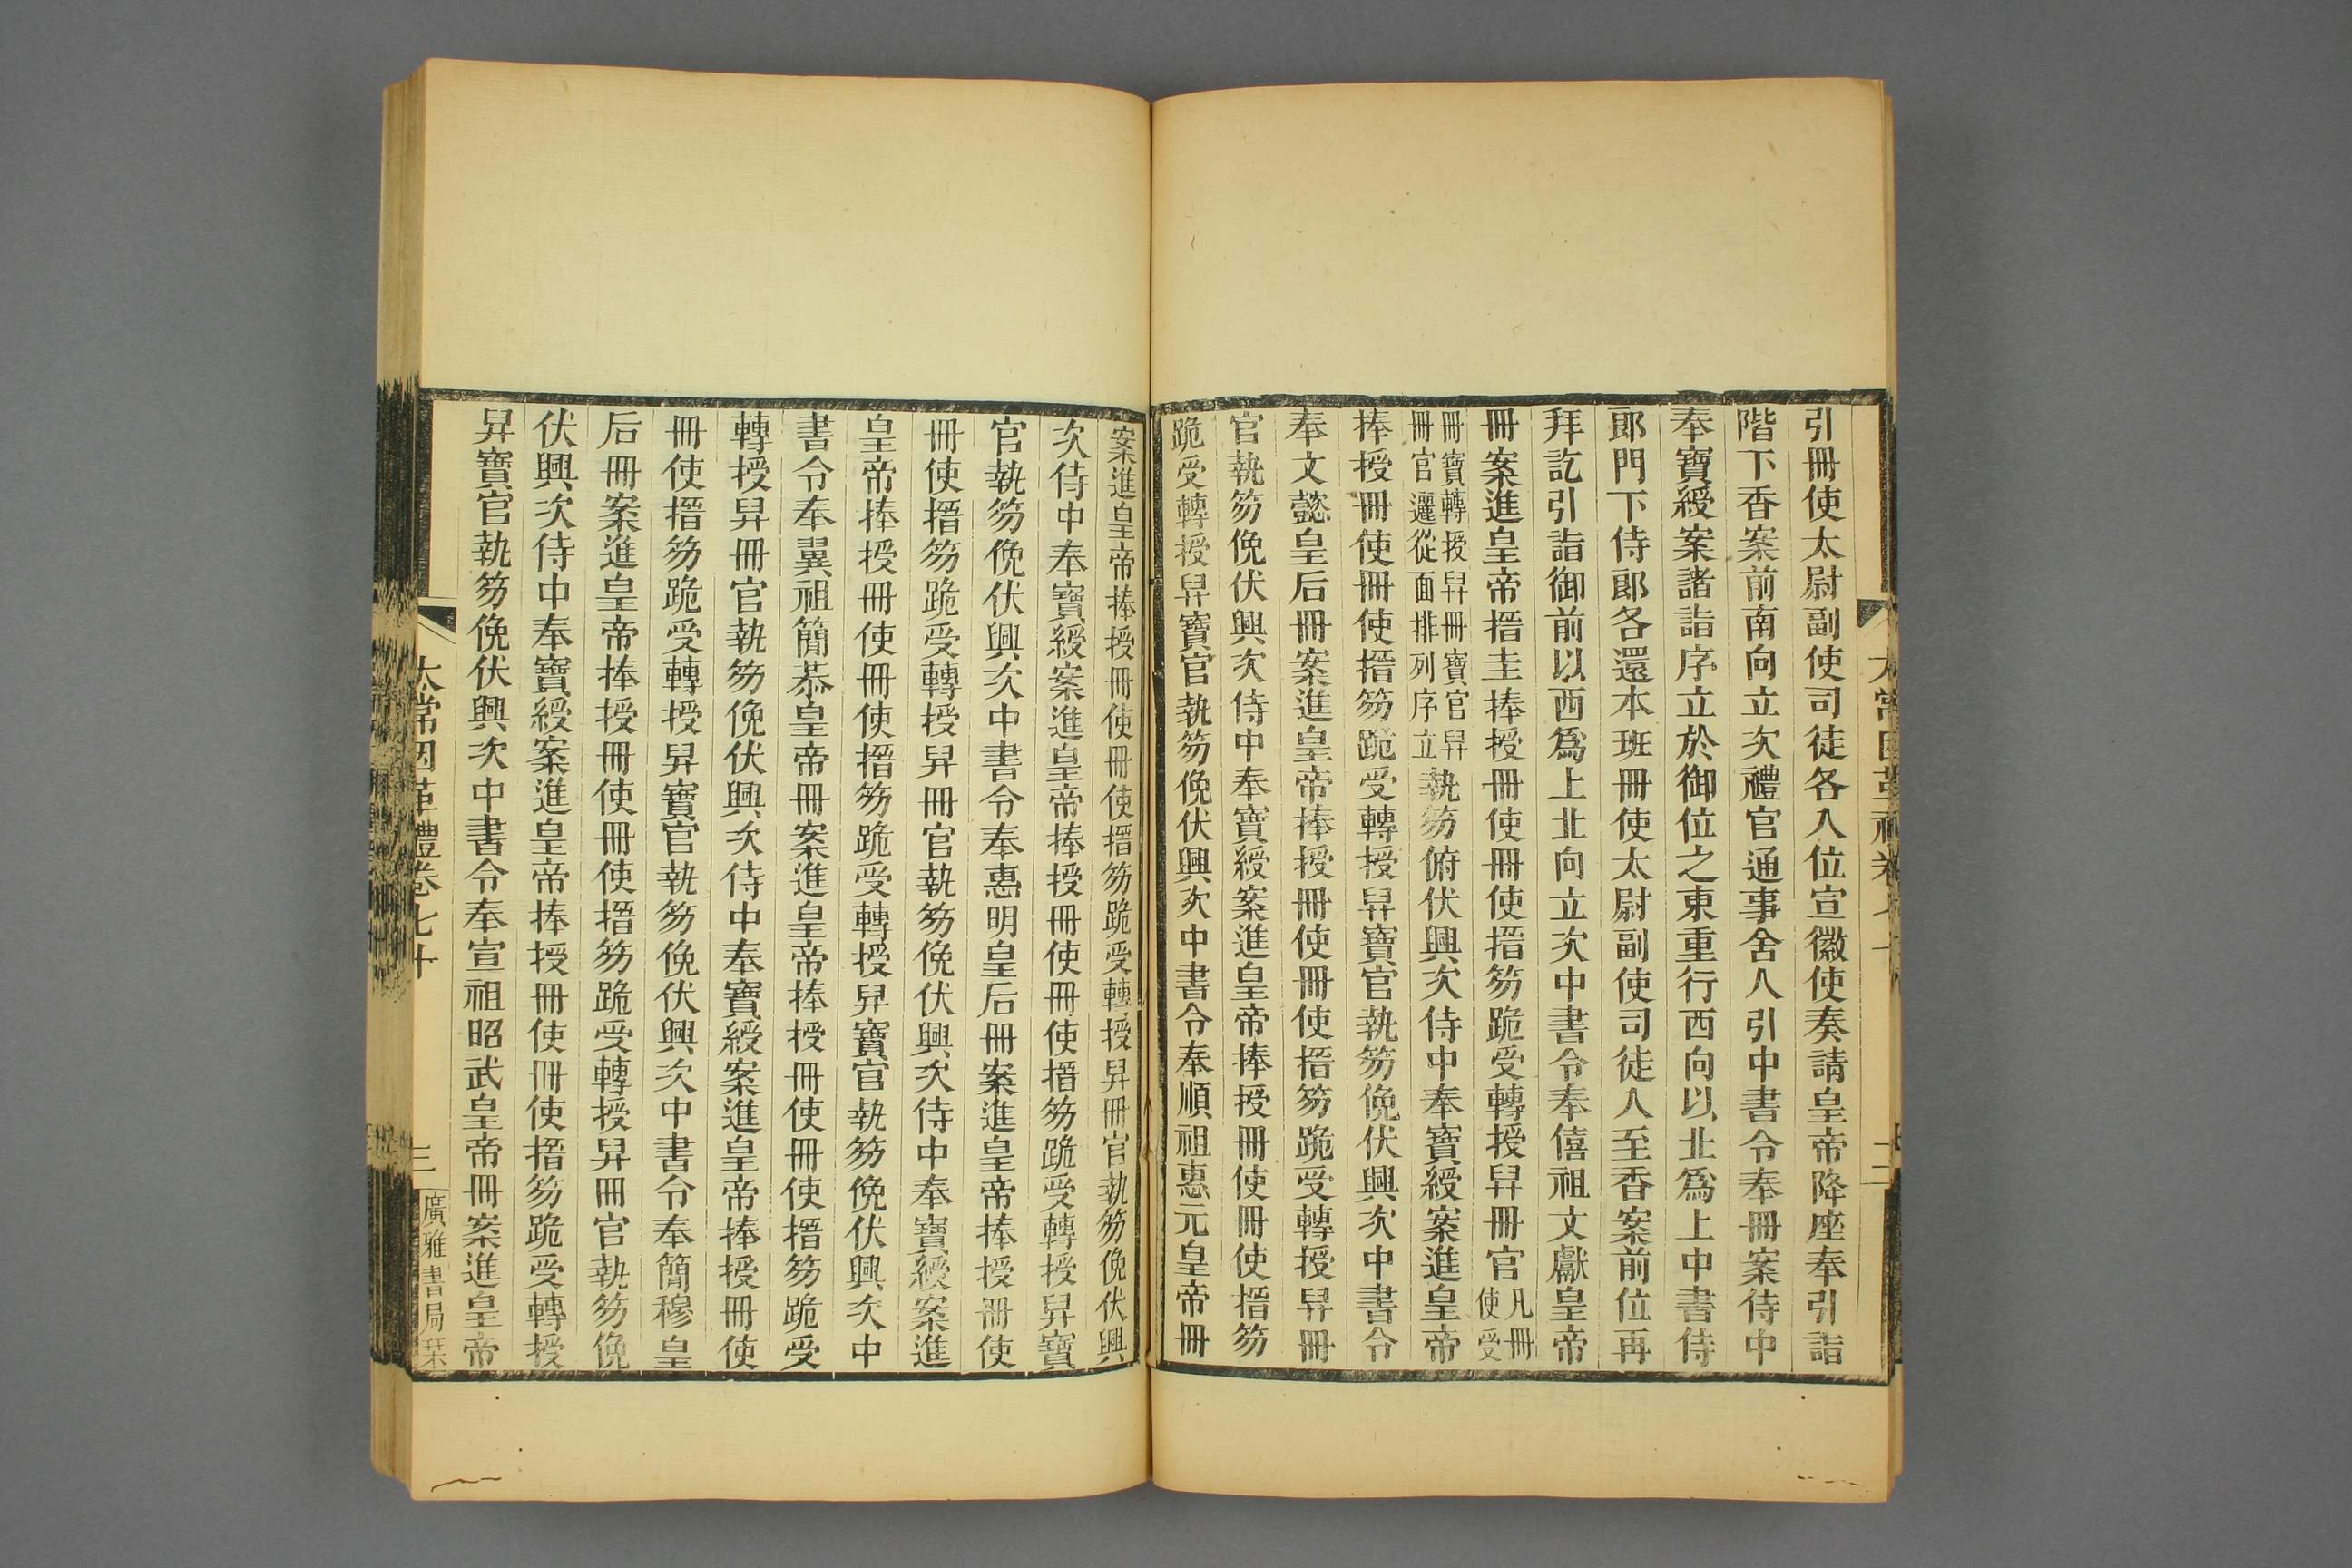 太常因革禮卷七十
二
引冊使太尉副使司徒各入位宣徽使奏請皇帝降座奉引詣
階下香案前南向立次禮官通事舍人引中書令奉冊案侍中
奉寶綬案諸詣序立於御位之東重行西向以北爲上中書侍
郎門下侍郎各還本班冊使太尉副使司徒入至香案前位再
拜訖引詣御前以西爲上北向立次中書令奉僖祖文獻皇帝
冊案進皇帝搢圭捧授冊使冊使搢笏跪受轉授舁冊官凡冊使受
冊寶轉授舁冊寶官舁冊官邐從面排列序立執笏俯伏興次侍中奉寶綬案進皇帝
捧授冊使冊使搢笏跪受轉授舁寶官執笏俛伏興次中書令
奉文懿皇后冊案進皇帝捧授冊使冊使搢笏跪受轉授舁冊
官執笏俛伏興次侍中奉寶綬案進皇帝捧授冊使冊使搢笏
跪受轉授舁寶官執笏俛伏興次中書令奉順祖惠元皇帝冊
案進皇帝捧授冊使冊使搢笏跪受轉授舁冊官執笏俛伏興
次侍中奉寶綬案進皇帝捧授冊使冊使搢笏跪受轉授舁寶
官執笏俛伏興次中書令奉惠明皇后冊案進皇帝捧授冊使
冊使搢笏跪受轉授舁冊官執笏俛伏興次侍中奉寶綬案進
皇帝捧授冊使冊使搢笏跪受轉授舁寶官執笏俛伏興次中
書令奉翼祖簡恭皇帝冊案進皇帝捧授冊使冊使搢笏跪受
轉授舁冊官執笏俛伏興次侍中奉寶綬案進皇帝捧授冊使
冊使搢笏跪受轉授舁寶官執笏俛伏興次中書令奉簡穆皇
后冊案進皇帝捧授冊使冊使搢笏跪受轉授舁冊官執笏俛
伏興次侍中奉寶綬案進皇帝捧授冊使冊使搢笏跪受轉授
舁寶官執笏俛伏興次中書令奉宣祖昭武皇帝冊案進皇帝
太常因革禮卷七十
三
廣雅書局栞